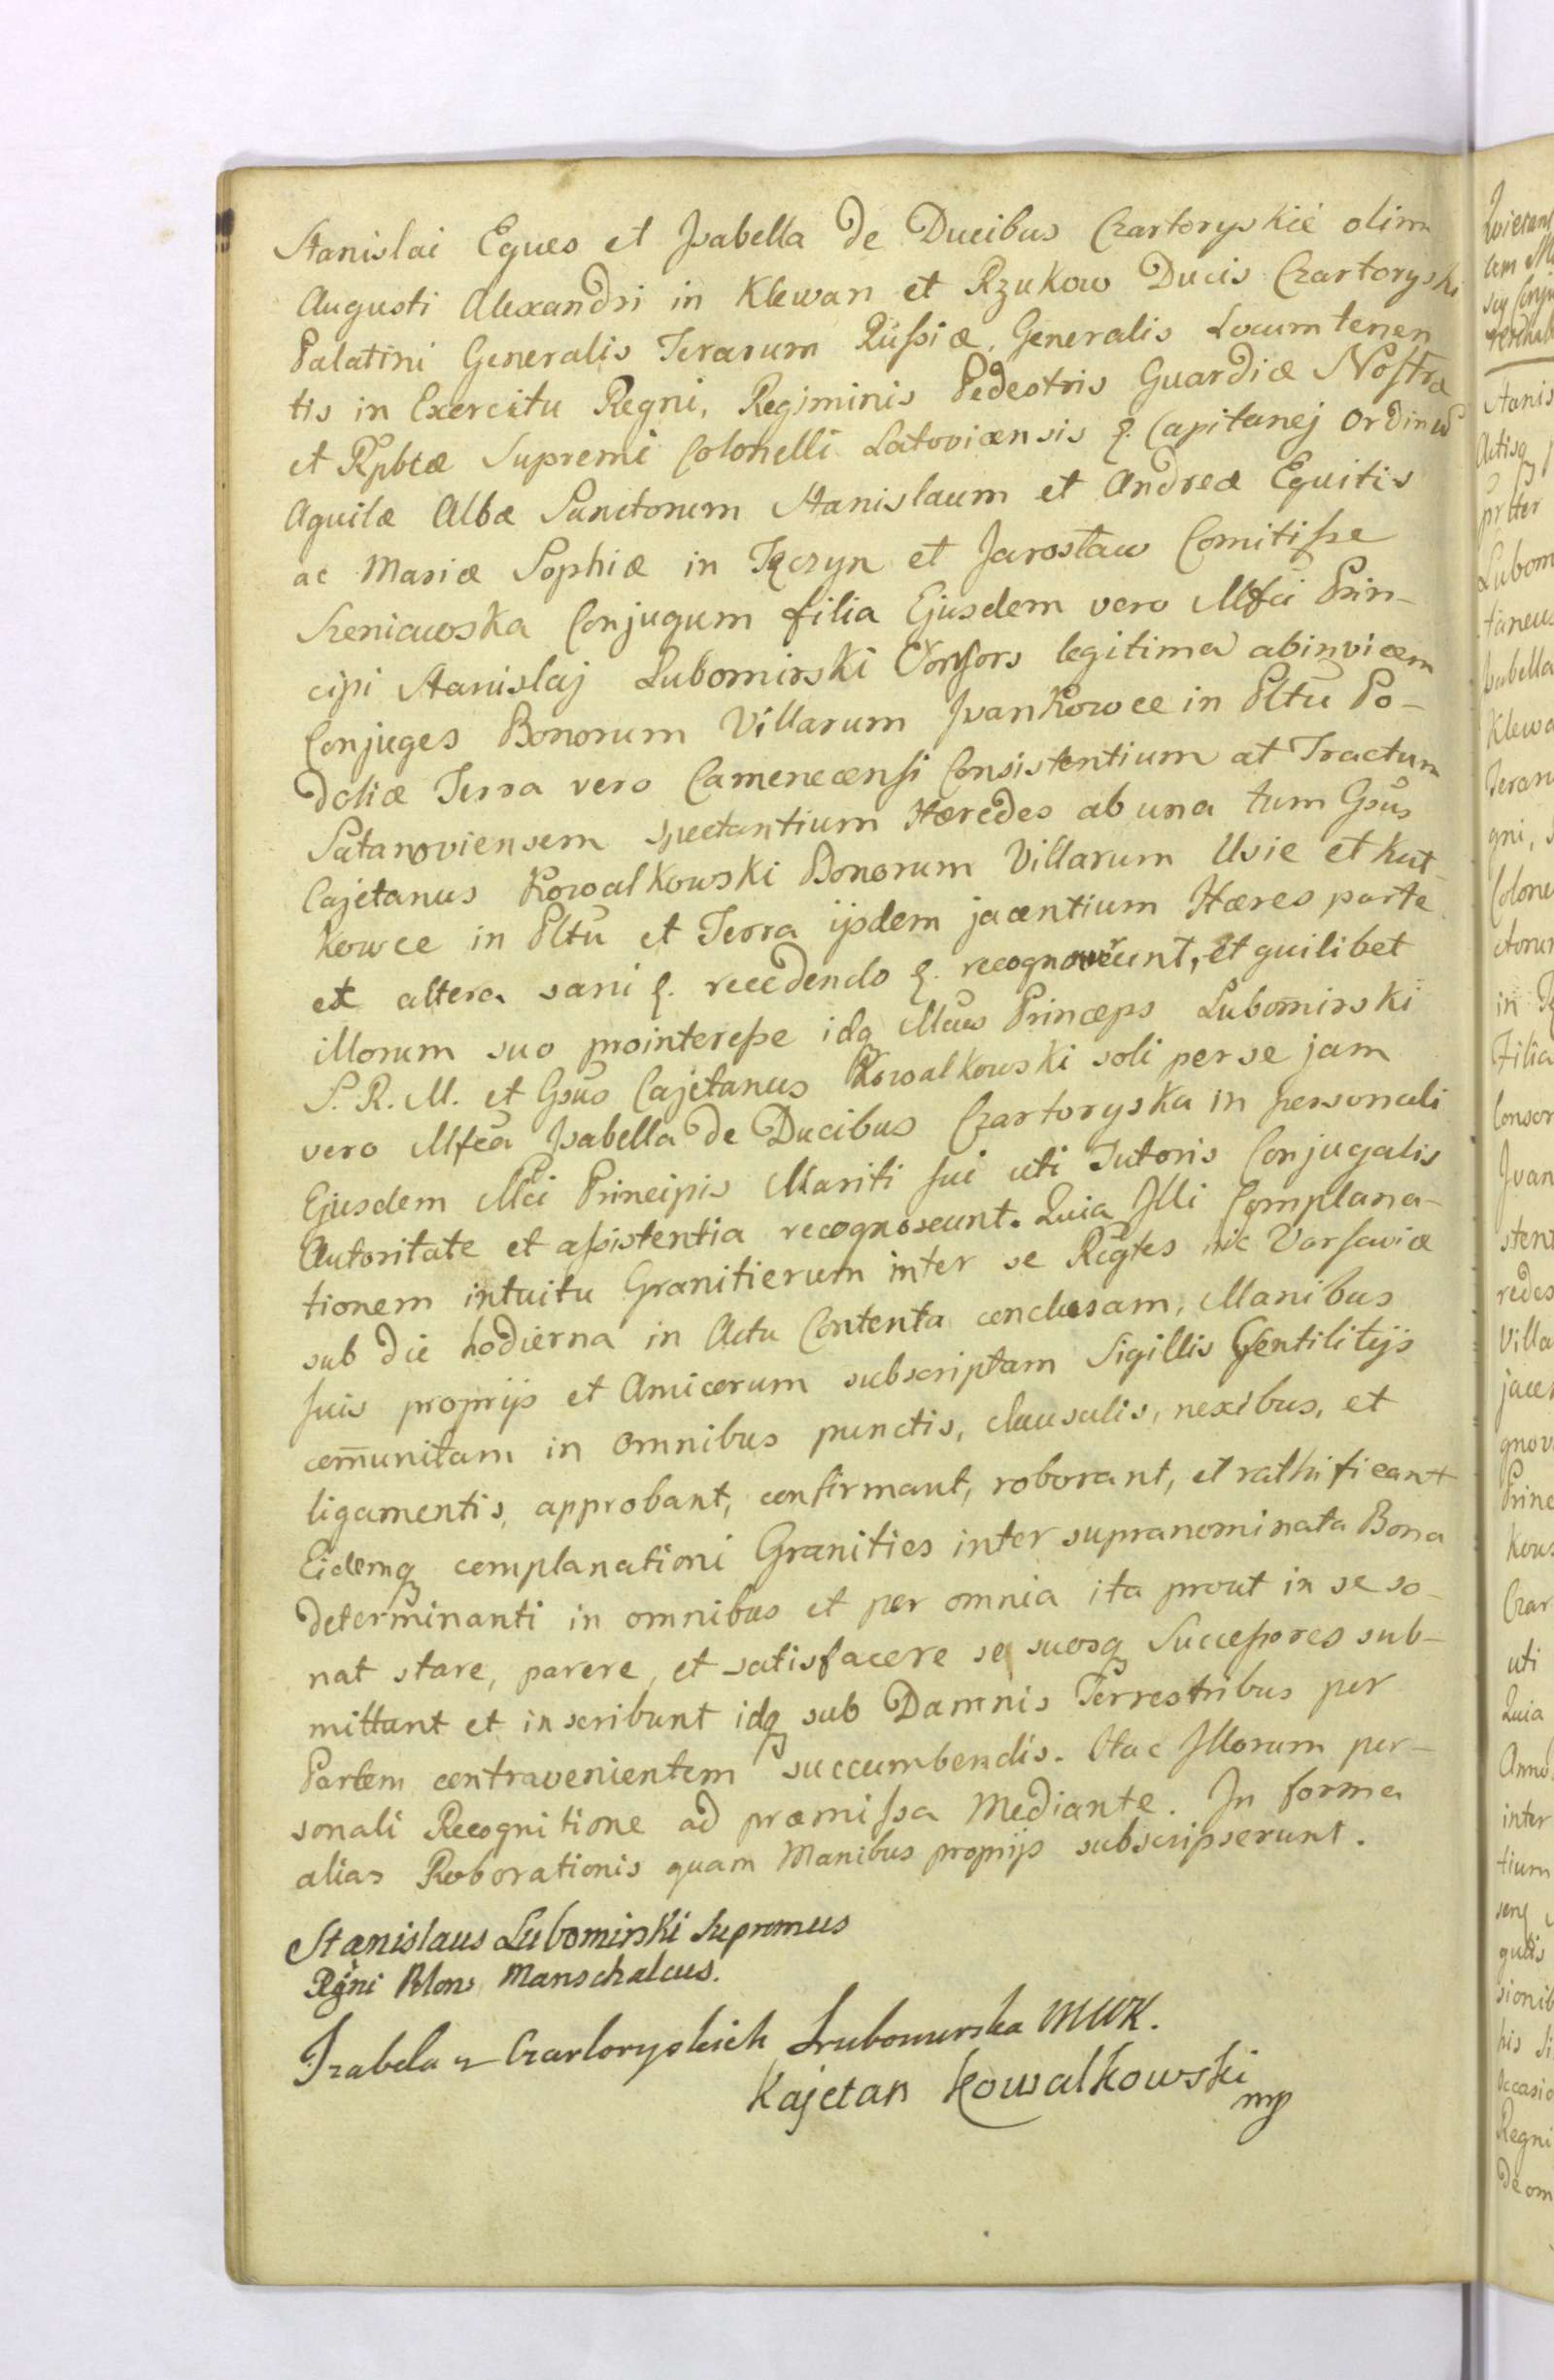 Stanislai Eques et Isabella de Ducibus Czartoryskie olim
Augusti Alexandri in Klewan et Rzukow Ducis Czartoryski
Palatini Generalis Terarum Russiæ, Generalis Locumtenen
tis in Exercitu Regni, Regiminis Pedestris Guardiæ Nostræ
et Rpbcæ Supremi Colonelli Latoviænsis &. Capitanej Ordinū
Aquilæ Albæ Sanctorum Stanislaum et Andreæ Equitis
ac Mariæ Sophiæ in Tęczyn et Jarosław Comitisse
Sieniawska Conjugum filia Ejusdem vero Mfci Prin-
cipi Stanislaj Lubomirski Consors legitima abinvicem
Conjuges Bonorum Villarum Jvankowce in Pltū Po-
doliæ Terra vero Camenecensi Consistentium at Tractum
Satanoviensem spectantium Hæredes ab una tum Gsūs
Cajetanus Kowalkowski Bonorum Villarum Usie et Kut-
kowce in Pltū et Terra ijsdem jacentium Hæres parte
ex altera sani &. recedendo &. recognoverunt, et quilibet
illorum suo prointeresse idq Mcus Princeps Lubomirski
S. R. M. et Gsūs Cajetanus Kowalkowski soli per se jam
vero Mfca Isabella de Ducibus Czartoryska in personali
Ejusdem Mci Principis Mariti sui uti Tutoris Conjugalis
Autoritate et assistentia recognoscunt. Quia Illi Complana-
tionem intuitu Granitierum inter se Rcgtes hic Varsaviæ
sub die hodierna in Actu Contenta conclusam, Manibus
suis proprijs et Amicorum subscriptam Sigillis Gentilitijs
com̄unitam in omnibus punctis, clausulis, nexibus, et
ligamentis, approbant, confirmant, roborant, et rathificant
Eidemq complanationi Granities inter supranominata Bona
determinanti in omnibus et per omnia ita prout in se so-
nat stare, parere, et satisfacere se suosq Successores sub-
mittunt et inscribunt idq sub Damnis Terrestribus per
Partem contravenientem succumbendis. Hac Illorum per-
sonali Recognitione ad præmissa Mediante. In forma
alias Roborationis quam Manibus proprijs subscripserunt.
Stanislaus Lubomirski Supremus
Regni Polon: Marschalcus.
Izabela z Czartoryskich Lubomirska MWK.
Kajetan Kowalkowski
mp